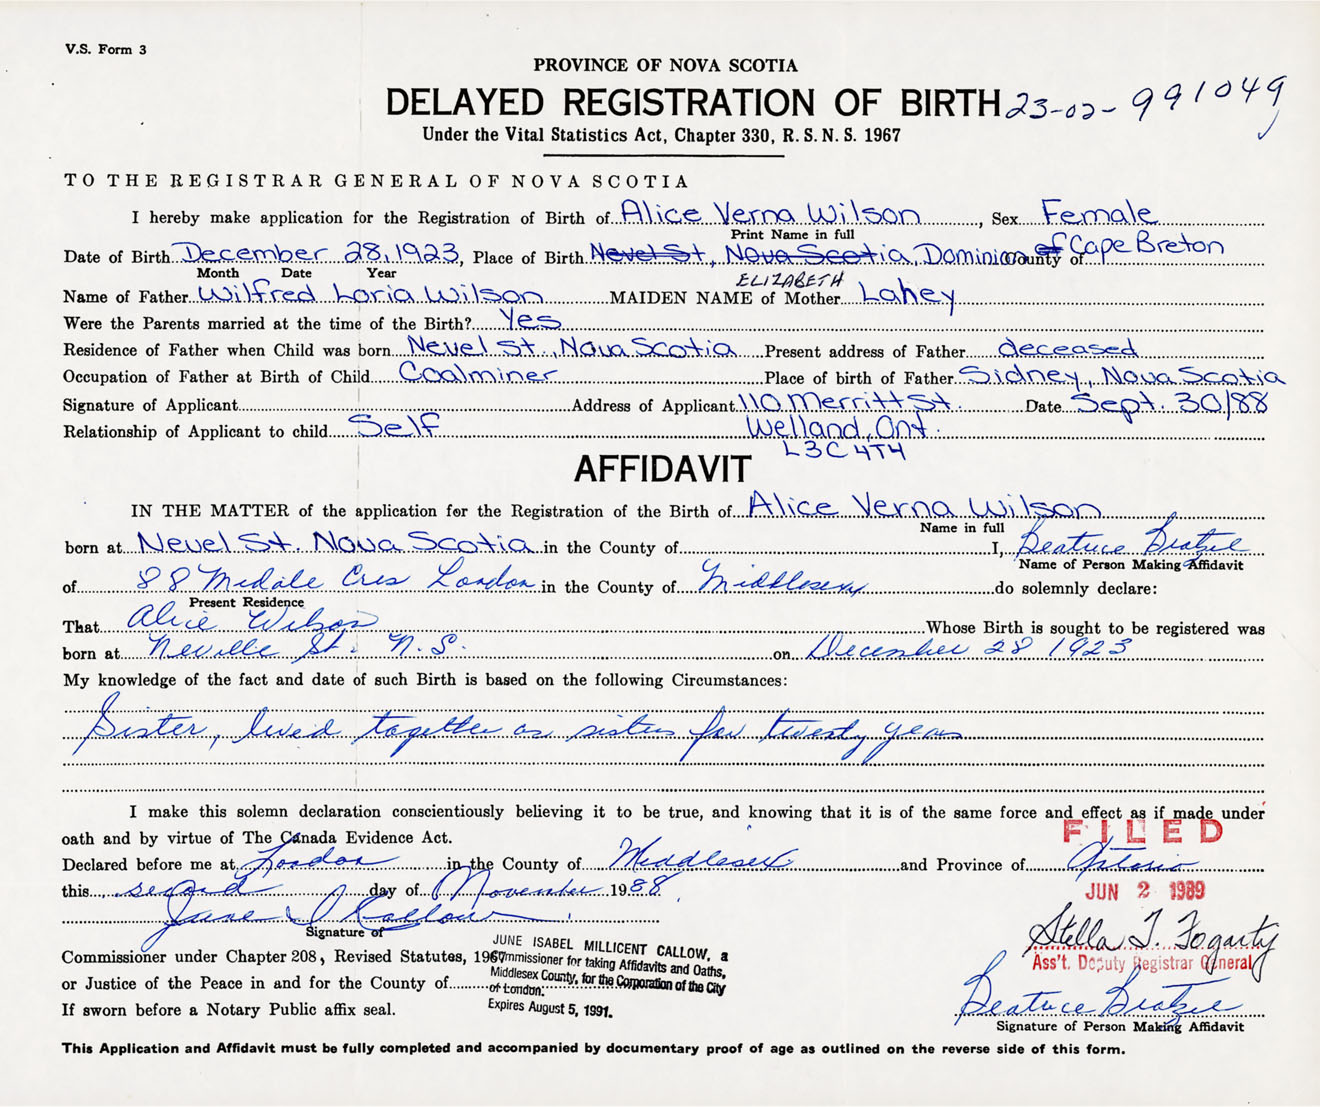 V.S. Form 3
PROVINCE OF NOVA SCOTIA
DELAYED REGISTRATION OF BIRTH 23-02-991049
Under the Vital Statistics Act, Chapter 330, R. S. N. S. 1967
TO THE REGISTRAR GENERAL OF NOVA SCOTIA
I hereby make application for the Registration of Birth of Alice Verna Wilson, Sex Female
Print Name in full
Date of Birth December 28, 1923, Place of Birth Nevel St, Nova Scotia, Dominion County of Cape Breton
Month Date Year
ELIZABETH
Name of Father Wilfred Loria Wilson MAIDEN NAME of Mother Lahey
Were the Parents married at the time of the Birth? Yes
Residence of Father when Child was born Nevel St., Nova Scotia Present address of Father deceased
Occupation of Father at Birth of Child Coalminer Place of birth of Father Sidney, Nova Scotia
Signature of Applicant Address of Applicant 110 Merritt St. Date Sept. 30/88
Relationship of Applicant to child Self Welland, Ont.
L3C 4T4
AFFIDAVIT
IN THE MATTER of the application for the Registration of the Birth of Alice Verna Wilson
Name in full
born at Nevel St. Nova Scotia in the County of I, Beatrice
Name of Person Making Affidavit
of 88 Cres London in the County of Middlesex do solemnly declare:
Present Residence
That Alice Wilson Whose Birth is sought to be registered was
born at Neville St. N.S. on December 28 1923
My knowledge of the fact and date of such Birth is based on the following Circumstances:
Sister, lived together as sisters for twenty years
I make this solemn declaration conscientiously believing it to be true, and knowing that it is of the same force and effect as if made under
oath and by virtue of The Canada Evidence Act.
FILED
Declared before me at London in the County of Middlesex and Province of Ontario
this second day of November 1988.
JUN 2 1989
June I Callow
Signature of
Stella T. Fogarty
Ass't. Deputy Registrar General
JUNE ISABEL MILLICENT CALLOW, a
Commissioner under Chapter 208, Revised Statutes, 1967
Commissioner for taking Affidavits and Oaths,
Middlesex County, for the Corporation of the City
or Justice of the Peace in and for the County of
of London.
Expires August 5, 1991.
If sworn before a Notary Public affix seal.
Beatrice
Signature of Person Making Affidavit
This Application and Affidavit must be fully completed and accompanied by documentary proof of age as outlined on the reverse side of this form.